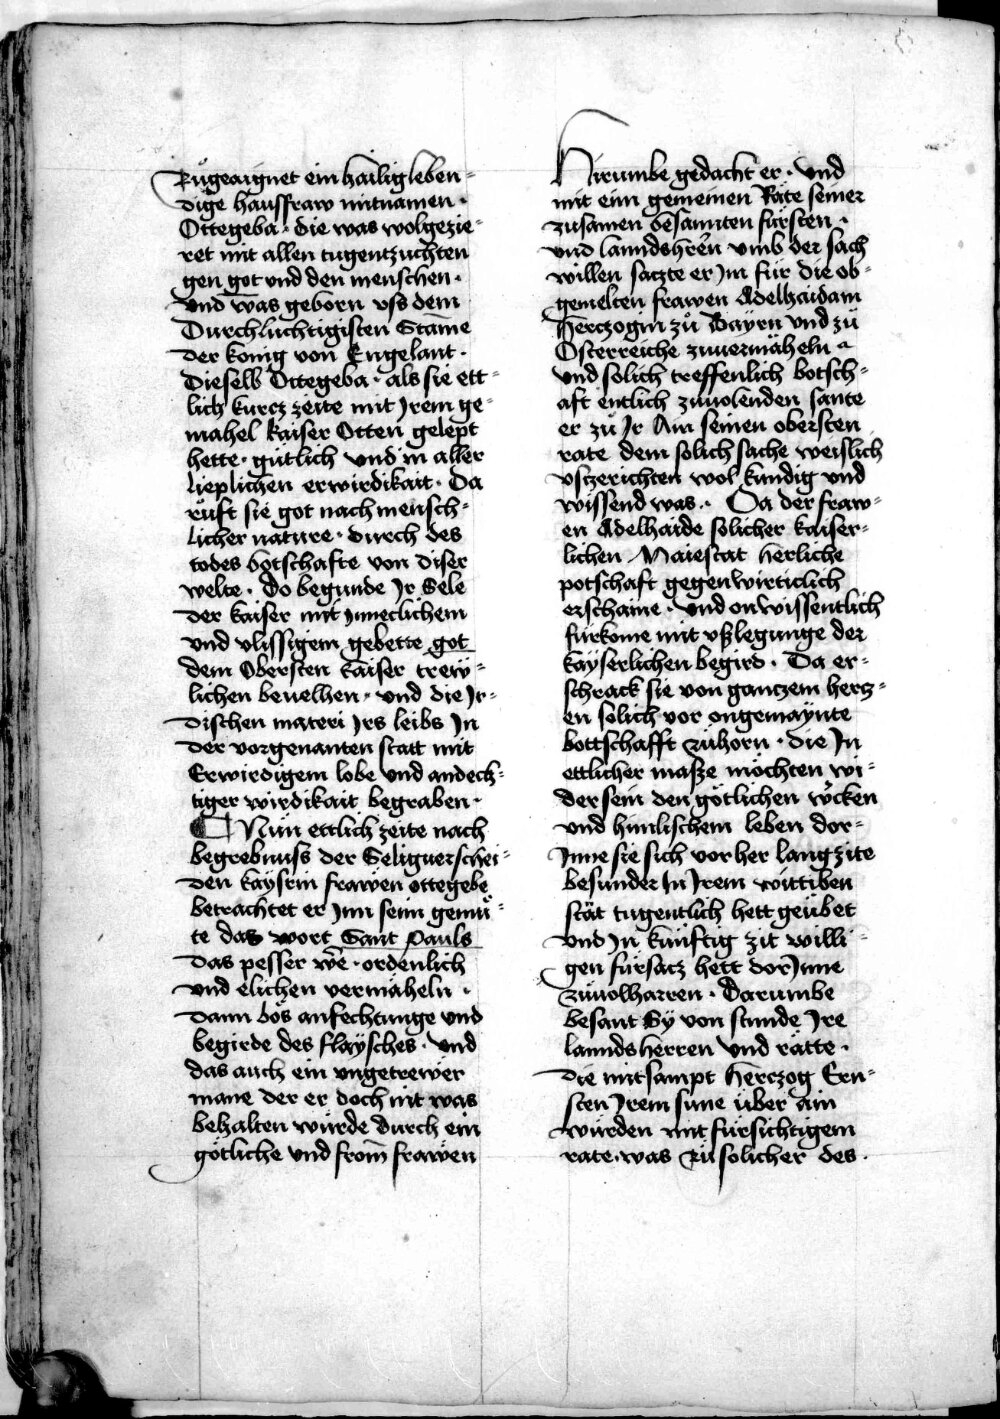 zůgeaignet ein hailig leben-
dige haussfraw mitnamen ·
Ottegeba · die was wolgezie-
ret mit allen tugentzuchten
gen got vnd den menschen ·
vnd was geborn vss dem
Durchluchtigisten Stame
der konig von Engelant ·
Dieselb Ottegeba · als sie ett-
lich kurcz zeite mit Jrem ge-
mahel kaiser Otten gelept
hette · gütlich vnd in aller
lieplichen erwirdikait · Da
rüft sie got nach mensch-
licher nature · durch des
todes botschafte von diser
welte · Do begunde Jr Sele
der kaiser mit Jnneclichem
vnd vlissigem gebette got
dem Obersten kaiser trew-
lichen beuelhen · vnd die Jr-
dischen materi Jrs leibs Jn
der vorgenanten statt mit
Erwirdigem lobe vnd andech-
tiger wirdikait begraben ·
Nün ettlich zeite nach
begrebnuss der Seliguerschei-
den kaysrin frawen ottegebe
betrachtet er Jnn seim gemü-
te das wort Sant Pauls
das pesser wer̄ · ordenlich
vnd elichen vermäheln ·
dann bös anfechtunge vnd
begirde des flaysches · vnd
das auch ein vngetrewer
mane der er doch nit was
behalten würde durch ein
götliche vnd from̄ frawen
Hirumbe gedacht er · vnd
mit einn gemeinen Rate seiner
zusamen besannten fürsten ·
vnd lanndshren̄ vmb der sach
willen saczte er Jm für die ob-
gemelten frawen Adelhaidam
herczogin zů Bayrn vnd zů
Österreiche zuuermäheln
vnd solich treffenlich botsch-
aft entlich zuuolenden sante
er zů Jr Ain seinen obersten
rate dem solich sache weislich
vszerichten wol kundig vnd
wissend was · Da der fraw-
en Adelhaide solicher kaiser-
lichen Maiestat herliche
potschaft gegenwirticlich
erschaine · vnd onwissentlich
fürkome mit vßlegunge der
kayserlichen begird · Da er-
schrack sie von ganczem hercz-
en solich vor ongemaynte
bottschafft zůhorn · die Jn
ettlicher masze möchten wi-
der sein den götlichen wercken
vnd himlischem leben dor-
Jnne sie sich vorher lang zite
besunder Jn Jrem wittiben
stät tugentlich hett geübet
vnd Jn künftig zit willi-
gen fürsacz hett dorJnne
zůuolharren · Darumbe
besant Sy von stunde Jre
lannds herren vnd ratte ·
die mitsampt herczog Ern-
sten Jrem sune über ain
würden mit fürsichtigem
rate · was zů solicher des ·